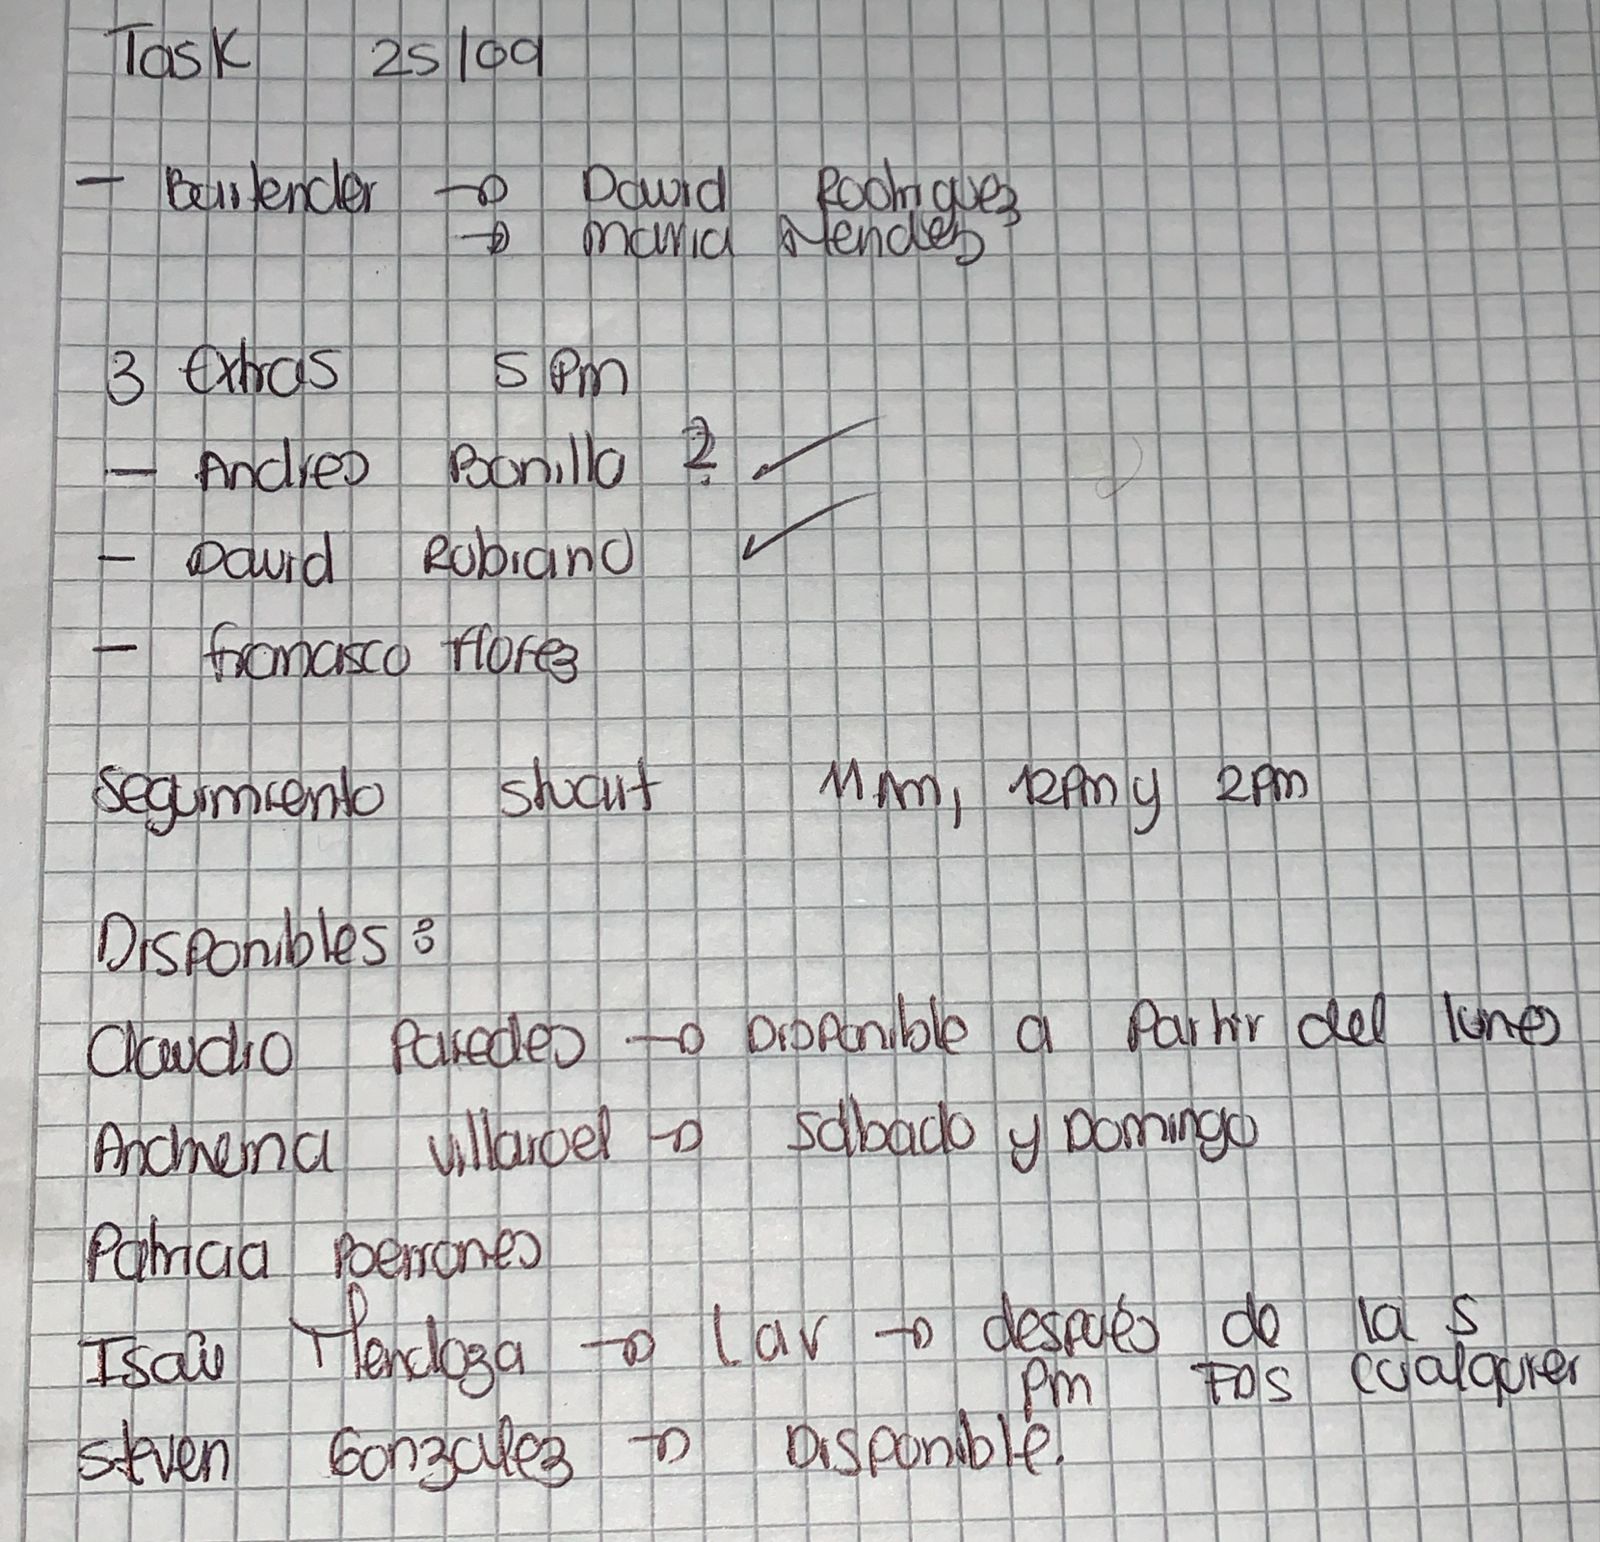 Task 25/09
- Bartender → David Rodriguez
→ Maria Mendez
3 Extras 5 Pm
- Andres Bonilla ? ✓
- David Rubiano ✓
- francisco Florez
Seguimiento 11 Am, 12Pm y 2Pm
Disponibles:
Claudio Paredes → Disponible a Partir del lunes
Villaroel → Sábado y Domingo
Patricia
Isaiu Mendoza → Lav → después de la 5
Pm FDS cualquier
Steven Gonzalez → Disponible.